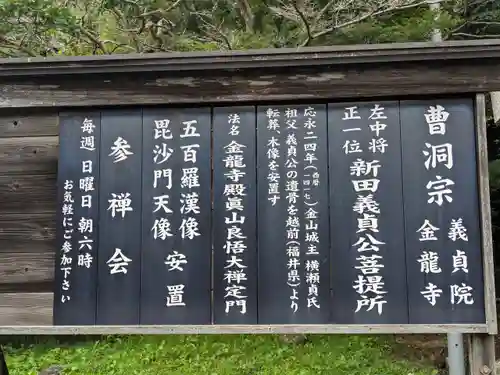 曹洞宗
義貞院
金龍寺
左中将
正一位
新田義貞公菩提所
応永二四年(西暦一四一七)金山城主 横瀬貞氏
祖父 義貞公の遺骨を越前(福井県)より
転葬、本像を安置す
法名 金龍寺殿眞山良悟大禅定門
五百羅漢像
毘沙門天像
安置
参禅会
毎週 日曜日 朝六時
お気軽にご参加下さい